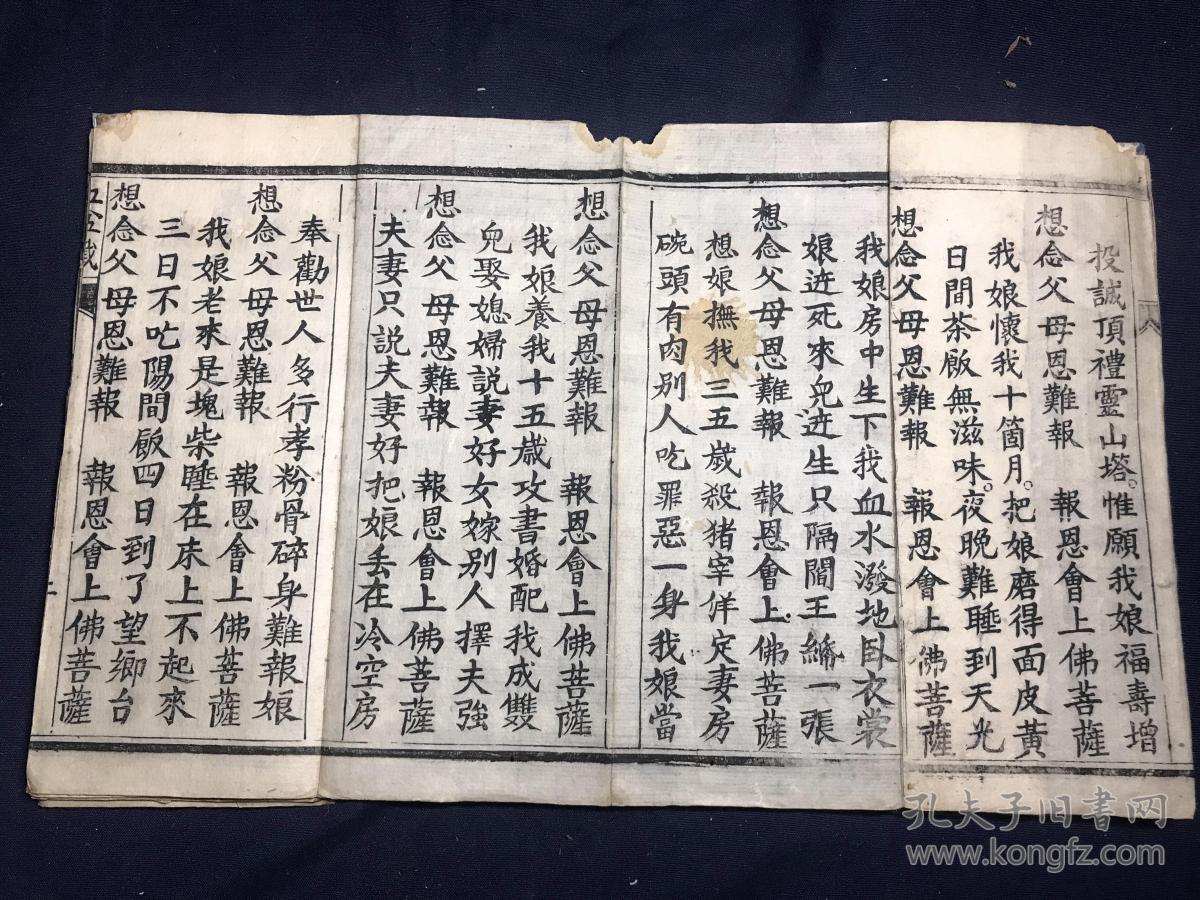 投誠頂禮靈山塔。惟願我娘福壽增
想念父母恩難報 報恩會上佛菩薩
我娘懷我十箇月。把娘磨得面皮黃
日間茶飯無滋味。夜晚難睡到天光
想念父母恩難報 報恩會上佛菩薩
我娘房中生下我血水潑地
衣裳
娘迸死來兒迸生只隔閻王
一張
想念父母恩難報 報恩會上佛菩薩
想娘撫我三五歲殺猪宰佯定妻房
碗頭有肉別人吃罪惡一身我娘當
想念父母恩難報 報恩會上佛菩薩
我娘養我十五歲攻書婚配我成雙
兒娶媳婦説妻好女嫁別人擇夫強
想念父母恩難報 報恩會上佛菩薩
夫妻只説夫妻好把娘丢在冷空房
奉勸世人多行孝粉骨碎身難報娘
想念父母恩難報 報恩會上佛菩薩
我娘老來是塊柴睡在床上不起來
三日不吃陽間飯四日到了望鄉台
想念父母恩難報 報恩會上佛菩薩
孔夫子旧书网
www.kongfz.com